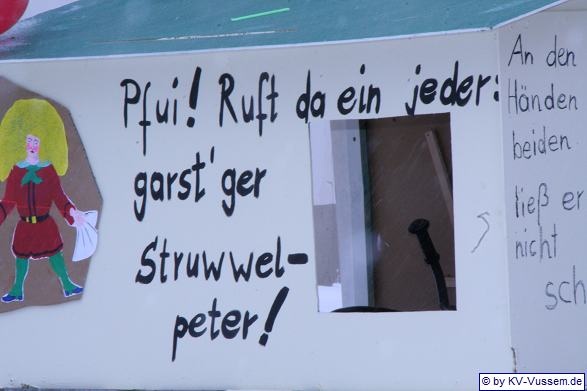 Pfui! Ruft da ein jeder:
garst'ger
Struwwel-
peter!
An den
Händen
beiden
ließ er
nicht
sch
© by KV-Vussem.de